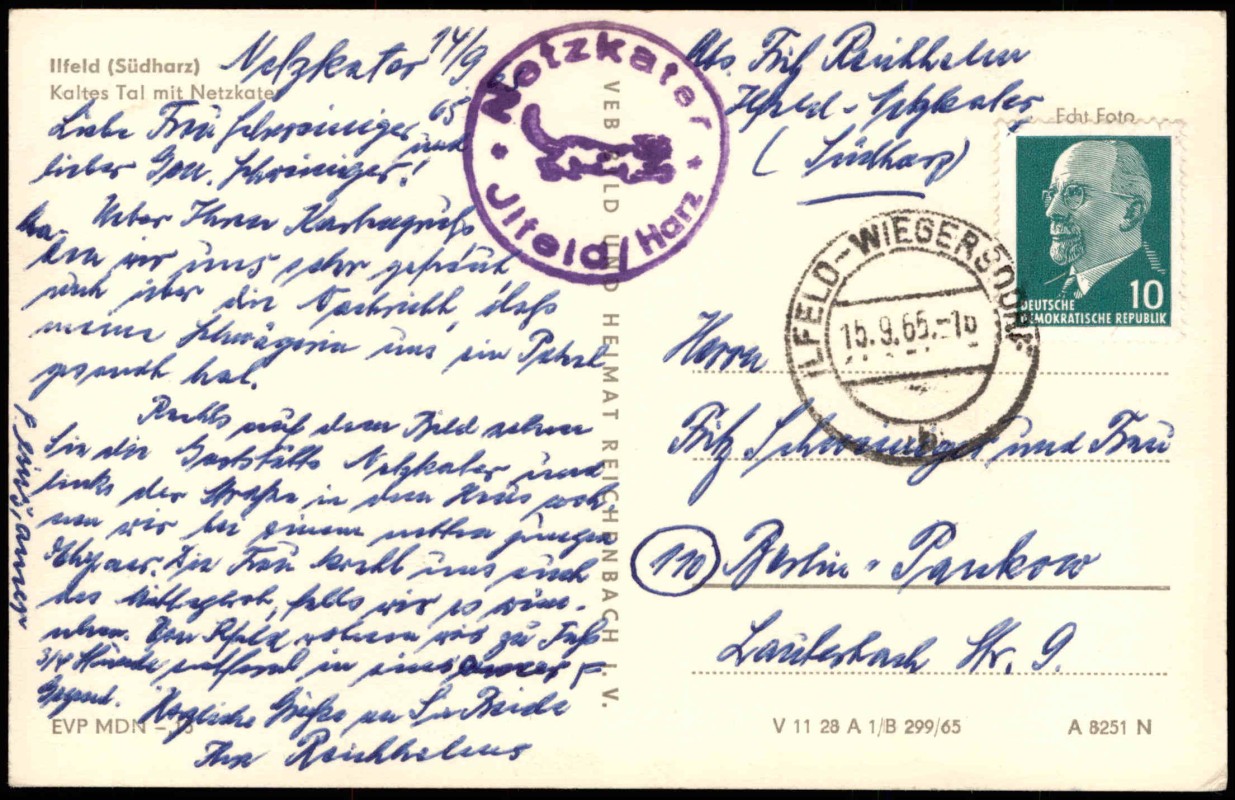 Ilfeld (Südharz)
Kaltes Tal mit Netzkater
Netzkater 14/9
65
Liebe Frau Schweiniger und
lieber Schweiniger!
Ueber Ihren Kartengruß
ha-
ben wir uns sehr gefreut
auch über die Nachricht, daß
meine Schwägerin uns ein Paket
gesandt hat.
Rechts auf dem Bild sehen
Sie die Gaststätte Netzkater und
links der Straße in dem Haus woh-
nen wir bei einem netten jungen
Ehepaar. Die Frau kocht uns auch
das Mittagbrot, falls wir es wün-
schen. Von Ilfeld wohnen wir zu Fuß
3/4 Stunde entfernt in einsamer
Gegend. Herzliche Grüße an Sie Beide
Ihre Reichhelms
EVP MDN
Netzkater
Ilfeld/Harz
VEB BILD UND HEIMAT REICHENBACH I. V.
Abs. Fritz Reichhelm
Ilfeld-Netzkater
(Südharz)
Echt Foto
10
DEUTSCHE
DEMOKRATISCHE REPUBLIK
ILFELD-WIEGERSDORF
15.9.65
b
Herrn
Fritz Schweiniger und Frau
110 Berlin-Pankow
Lauterbach Str. 9.
V 11 28 A 1/B 299/65
A 8251 N